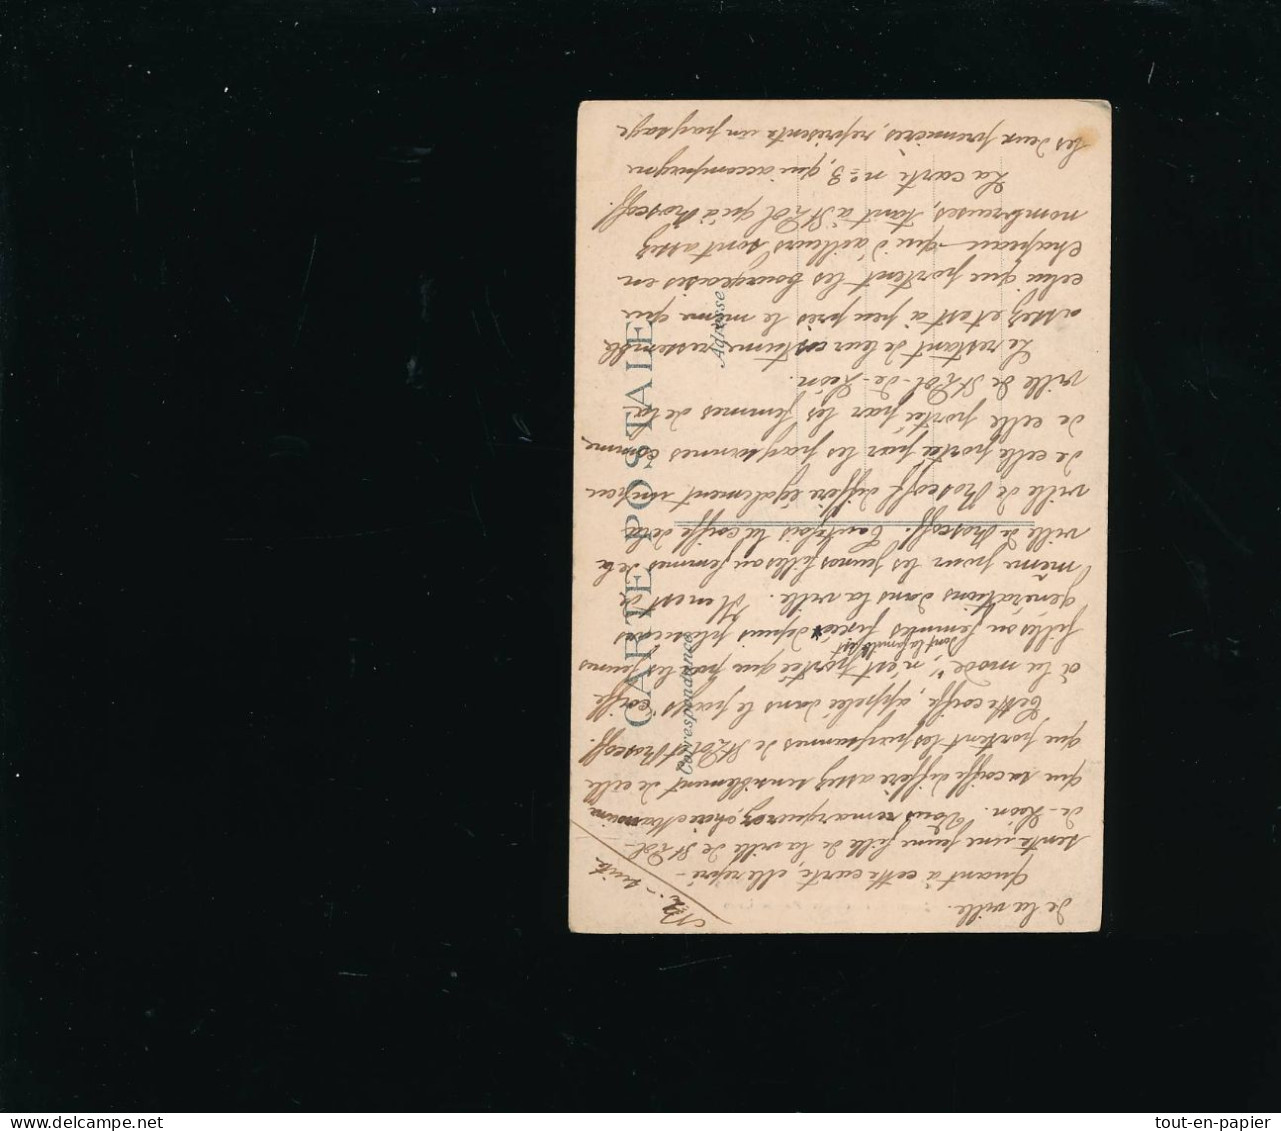 de la ville.
suite
Quant à cette carte, elle repré-
sente une jeune fille de la ville de St Pol-
de-Léon. Vous remarquerez, chère
que sa coiffe diffère assez sensiblement de celle
que portent les paysannes de St Pol et Roscoff.
Cette coiffe, appelée dans le pays "coiffe
à la mode", n'est portée que par les jeunes
filles ou femmes dont la famille est fixée depuis plusieurs
générations dans la ville. Il en est de
même pour les jeunes filles ou femmes de la
ville de Roscoff. Toutefois la coiffe de la
ville de Roscoff diffère également un peu
de celle portée par les paysannes comme
de celle portée par les femmes de la
ville de St Pol-de-Léon.
Le restant de leur costume ressemble
assez et est à peu près le même que
celui que portent les bourgeoises en
chapeau - qui d'ailleurs sont assez
nombreuses, tant à St Pol qu'à Roscoff.
La carte n° 3, qui accompagne
les deux premières, représente un paysage
CARTE POSTALE
Correspondance
Adresse
tout-en-papier
delcampe.net